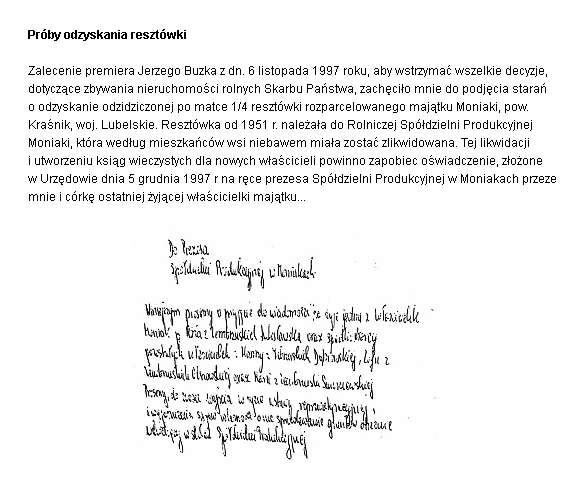 Próby odzyskania resztówki
Zalecenie premiera Jerzego Buzka z dn. 6 listopada 1997 roku, aby wstrzymać wszelkie decyzje,
dotyczące zbywania nieruchomości rolnych Skarbu Państwa, zachęciło mnie do podjęcia starań
o odzyskanie odzidziczonej po matce 1/4 resztówki rozparcelowanego majątku Moniaki, pow.
Kraśnik, woj. Lubelskie. Resztówka od 1951 r. należała do Rolniczej Spółdzielni Produkcyjnej
Moniaki, która według mieszkańców wsi niebawem miała zostać zlikwidowana. Tej likwidacji
i utworzeniu ksiąg wieczystych dla nowych właścicieli powinno zapobiec oświadczenie, złożone
w Urzędowie dnia 5 grudnia 1997 r na ręce prezesa Spółdzielni Produkcyjnej w Moniakach przeze
mnie i córkę ostatniej żyjącej właścicielki majątku...
Do Prezesa
Spółdzielni Produkcyjnej w Moniakach
prosimy o przyjęcie do wiadomości że żyje jedna z właścicielek
Moniak p. Maria z oraz spadkobiercy
pozostałych właścicielek: Hanny z Dąbrowskiej,
z oraz Marii z
Prosimy, do czasu wejścia w życie ustawy reprywatyzacyjnej
i wyjaśnienia spraw własności o nie sprzedawanie gruntów obecnie
wchodzących w skład Spółdzielni Produkcyjnej